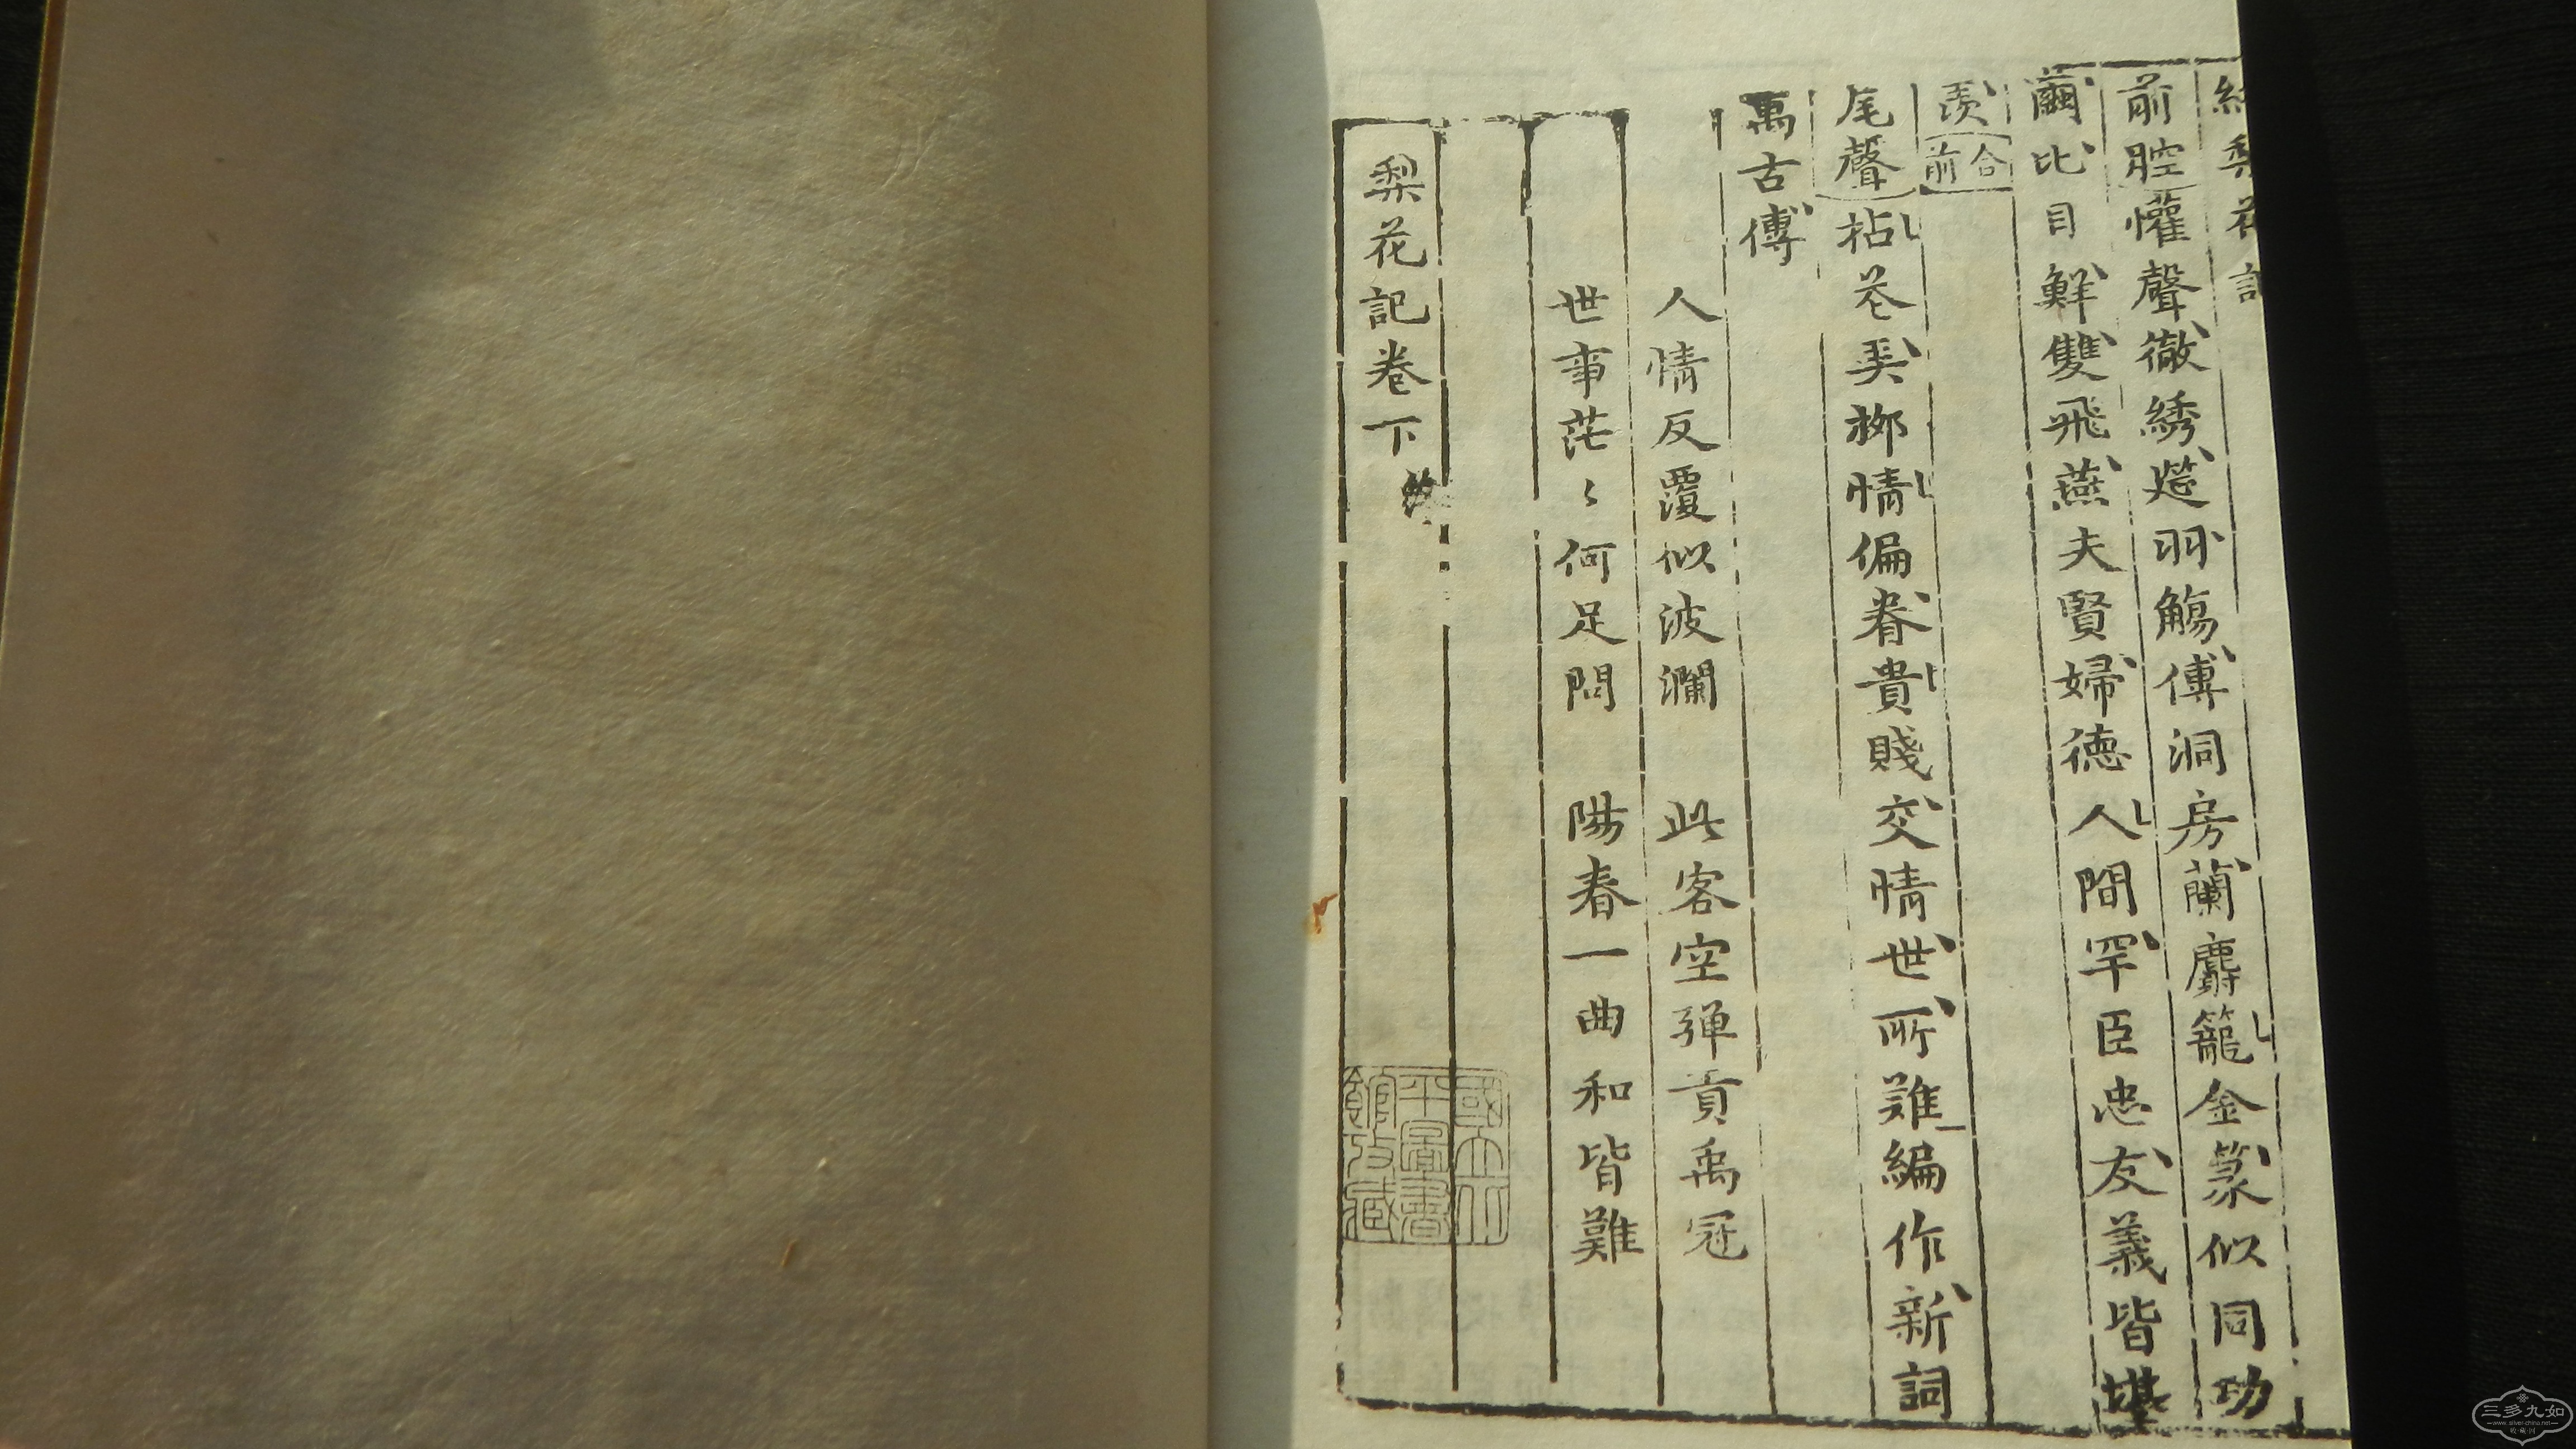 紅梨花記
前腔懽聲徹綉筵羽觴傳洞房蘭麝籠金篆似同功
繭比目鮮雙飛燕夫賢婦德人間罕臣忠友義皆堪
羨合前
尾聲拈花弄柳情偏眷貴賤交情世所難編作新詞
萬古傳
人情反覆似波瀾 此客空彈貢禹冠
世事茫〻何足問 陽春一曲和皆難
梨花記卷下
國立北
平圖書
館收藏
三多九如